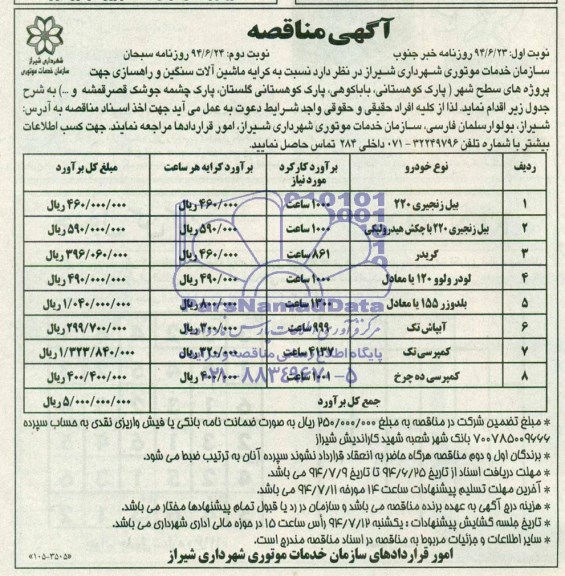 آگهی مناقصه
شهرداری شیراز
سازمان خدمات موتوری
نوبت اول: ۹۴/۶/۲۳ روزنامه خبر جنوب
نوبت دوم: ۹۴/۶/۲۴ روزنامه سبحان
سازمان خدمات موتوری شهرداری شیراز در نظر دارد نسبت به کرایه ماشین آلات سنگین و راهسازی جهت
پروژه های سطح شهر ( پارک کوهستانی، باباکوهی، پارک کوهستانی گلستان، پارک چشمه جوشک قصر قمشه و ...) به شرح
جدول زیر اقدام نماید. لذا از کلیه افراد حقیقی و حقوقی واجد شرایط دعوت به عمل می آید جهت اخذ اسناد مناقصه به آدرس:
شیراز، بولوار سلمان فارسی، سازمان خدمات موتوری شهرداری شیراز، امور قراردادها مراجعه نمایند. جهت کسب اطلاعات
بیشتر با شماره تلفن ۳۲۲۴۹۷۹۶ - ۰۷۱ داخلی ۲۸۴ تماس حاصل نمایید.
ردیف نوع خودرو برآورد کارکرد مورد نیاز برآورد کرایه هر ساعت مبلغ کل برآورد
۱ بیل زنجیری ۲۲۰ ۱۰۰۰ ساعت ۴۶۰/۰۰۰ ریال ۴۶۰/۰۰۰/۰۰۰ ریال
۲ بیل زنجیری ۲۲۰ با چکش هیدرولیکی ۱۰۰۰ ساعت ۵۹۰/۰۰۰ ریال ۵۹۰/۰۰۰/۰۰۰ ریال
۳ گریدر ۸۶۱ ساعت ۴۶۰/۰۰۰ ریال ۳۹۶/۰۶۰/۰۰۰ ریال
۴ لودر ولوو ۱۲۰ یا معادل ۱۰۰۰ ساعت ۴۹۰/۰۰۰ ریال ۴۹۰/۰۰۰/۰۰۰ ریال
۵ بلدوزر ۱۵۵ یا معادل ۱۳۰۰ ساعت ۸۰۰/۰۰۰ ریال ۱/۰۴۰/۰۰۰/۰۰۰ ریال
۶ آبپاش تک ۹۹۹ ساعت ۳۰۰/۰۰۰ ریال ۲۹۹/۷۰۰/۰۰۰ ریال
۷ کمپرسی تک ۴۱۳۷ ساعت ۳۲۰/۰۰۰ ریال ۱/۳۲۳/۸۴۰/۰۰۰ ریال
۸ کمپرسی ده چرخ ۱۰۰۱ ساعت ۴۰۰/۰۰۰ ریال ۴۰۰/۴۰۰/۰۰۰ ریال
جمع کل برآورد ۵/۰۰۰/۰۰۰/۰۰۰ ریال
ParsNamadData
پایگاه اطلاع رسانی مناقصه
۰۲۱-۸۸۳۴۹۶۷۰-۵
* مبلغ تضمین شرکت در مناقصه به مبلغ ۲۵۰/۰۰۰/۰۰۰ ریال به صورت ضمانت نامه بانکی یا فیش واریزی نقدی به حساب سپرده
۷۰۰۷۸۵۰۰۹۶۶۶ بانک شهر شعبه شهید کاراندیش شیراز
* برندگان اول و دوم مناقصه هرگاه حاضر به انعقاد قرارداد نشوند سپرده آنان به ترتیب ضبط می شود.
* مهلت دریافت اسناد از تاریخ ۹۴/۶/۲۵ تا تاریخ ۹۴/۷/۹ می باشد.
* آخرین مهلت تسلیم پیشنهادات ساعت ۱۴ مورخه ۹۴/۷/۱۱ می باشد.
* هزینه درج آگهی به عهده برنده مناقصه می باشد و سازمان در رد یا قبول تمام پیشنهادها مختار می باشد.
* تاریخ جلسه گشایش پیشنهادات : یکشنبه ۹۴/۷/۱۲ رأس ساعت ۱۵ در حوزه مالی اداری شهرداری می باشد.
* سایر اطلاعات و جزئیات مربوط به مناقصه در اسناد مناقصه مندرج است.
امور قراردادهای سازمان خدمات موتوری شهرداری شیراز
«۱۰۵-۳۵۰۵»